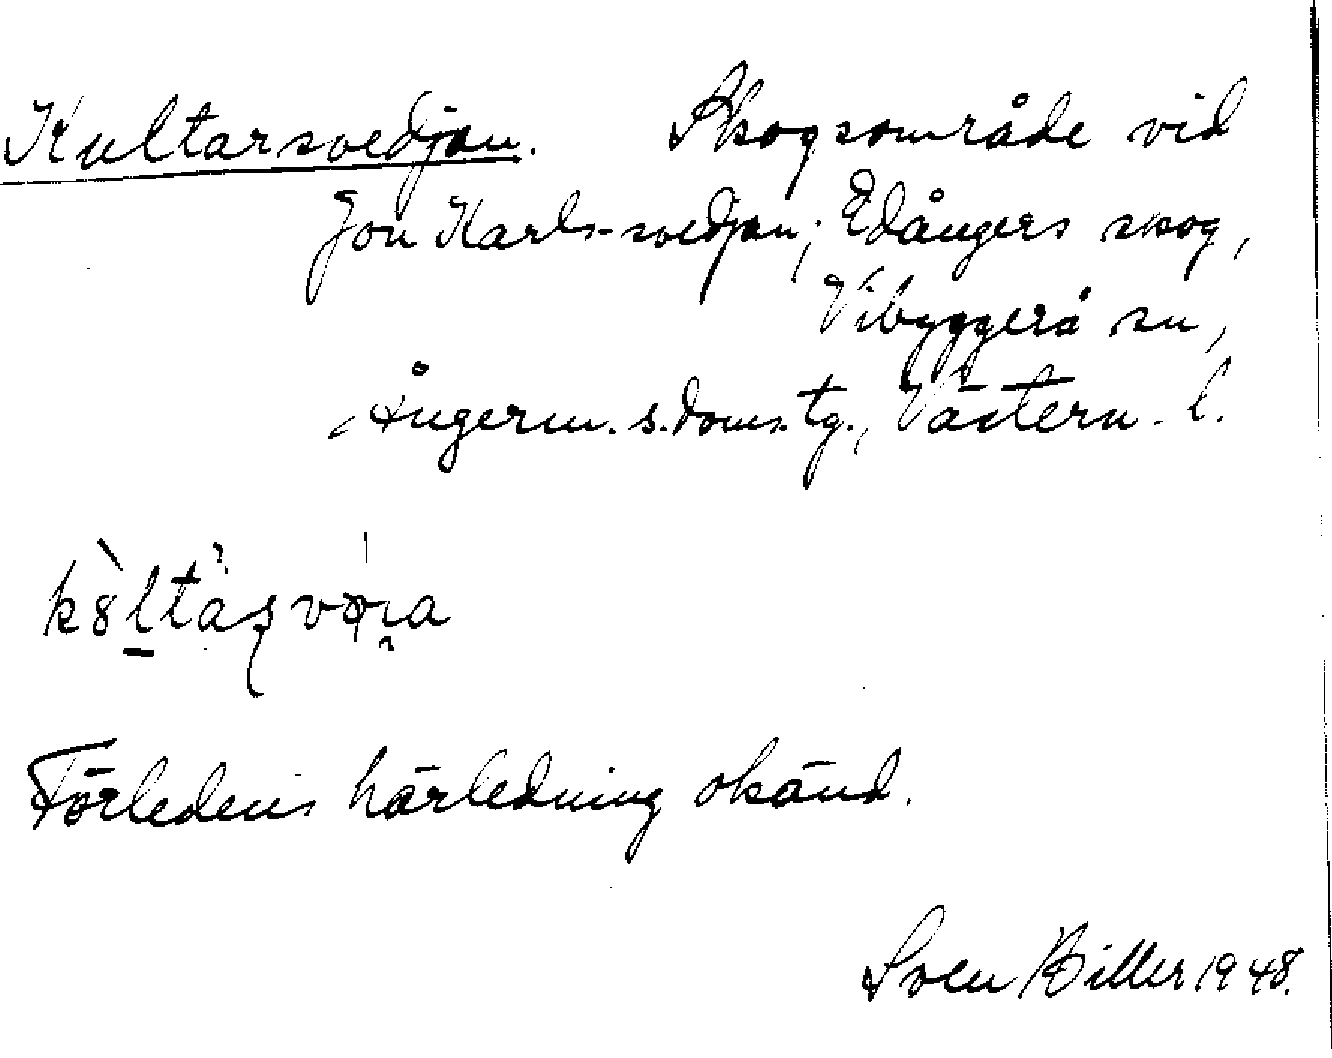 Kultarsvedjan. Skogsområde vid
Jon Karls-svedjan; Edångers skog,
Vibyggerå sn,
Ångerm. s. doms. tg., Västern. l.
Förledens härledning okänd.
Sven Biller 1948.